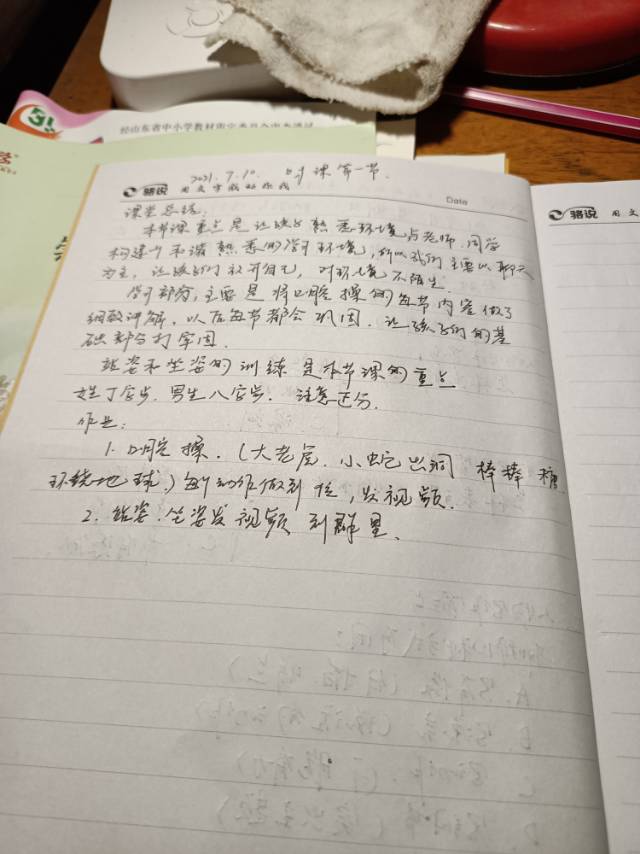 经山东省中小学教材审定委员会审查通过
2021.7.10. 时课第一节.
骆说 用文字载好你我
Date
骆说 用文
课堂总结:
本节课重点是让孩子熟悉环境与老师.同学
构建个和谐熟悉的学习环境,所以我们主要以聊天
为主,让孩子们放开自己,对环境不陌生.
学习部分,主要是将口腔操的每节内容做了
细致讲解,以后每节都会巩固.让孩子们的基
础部分打牢固.
站姿和坐姿的训练是本节课的重点
女生丁字步.男生八字步.注意区分.
作业:
1.口腔操.(大老虎.小蛇出洞 棒棒糖
环绕地球.)每个动作做到位,发视频.
2.站姿.坐姿发视频到群里.